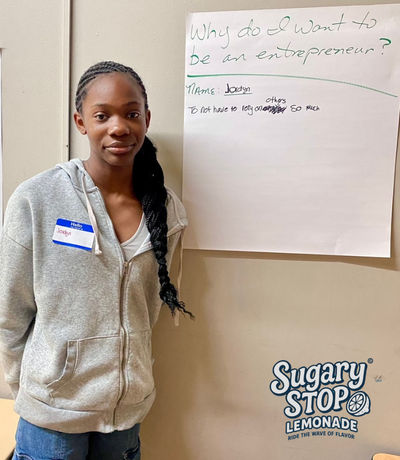 Why do I want to
be an entrepreneur?
NAME: Jordyn
others
To not have to rely on so much
Hello
Jordyn
Sugary
STOP
LEMONADE
RIDE THE WAVE OF FLAVOR